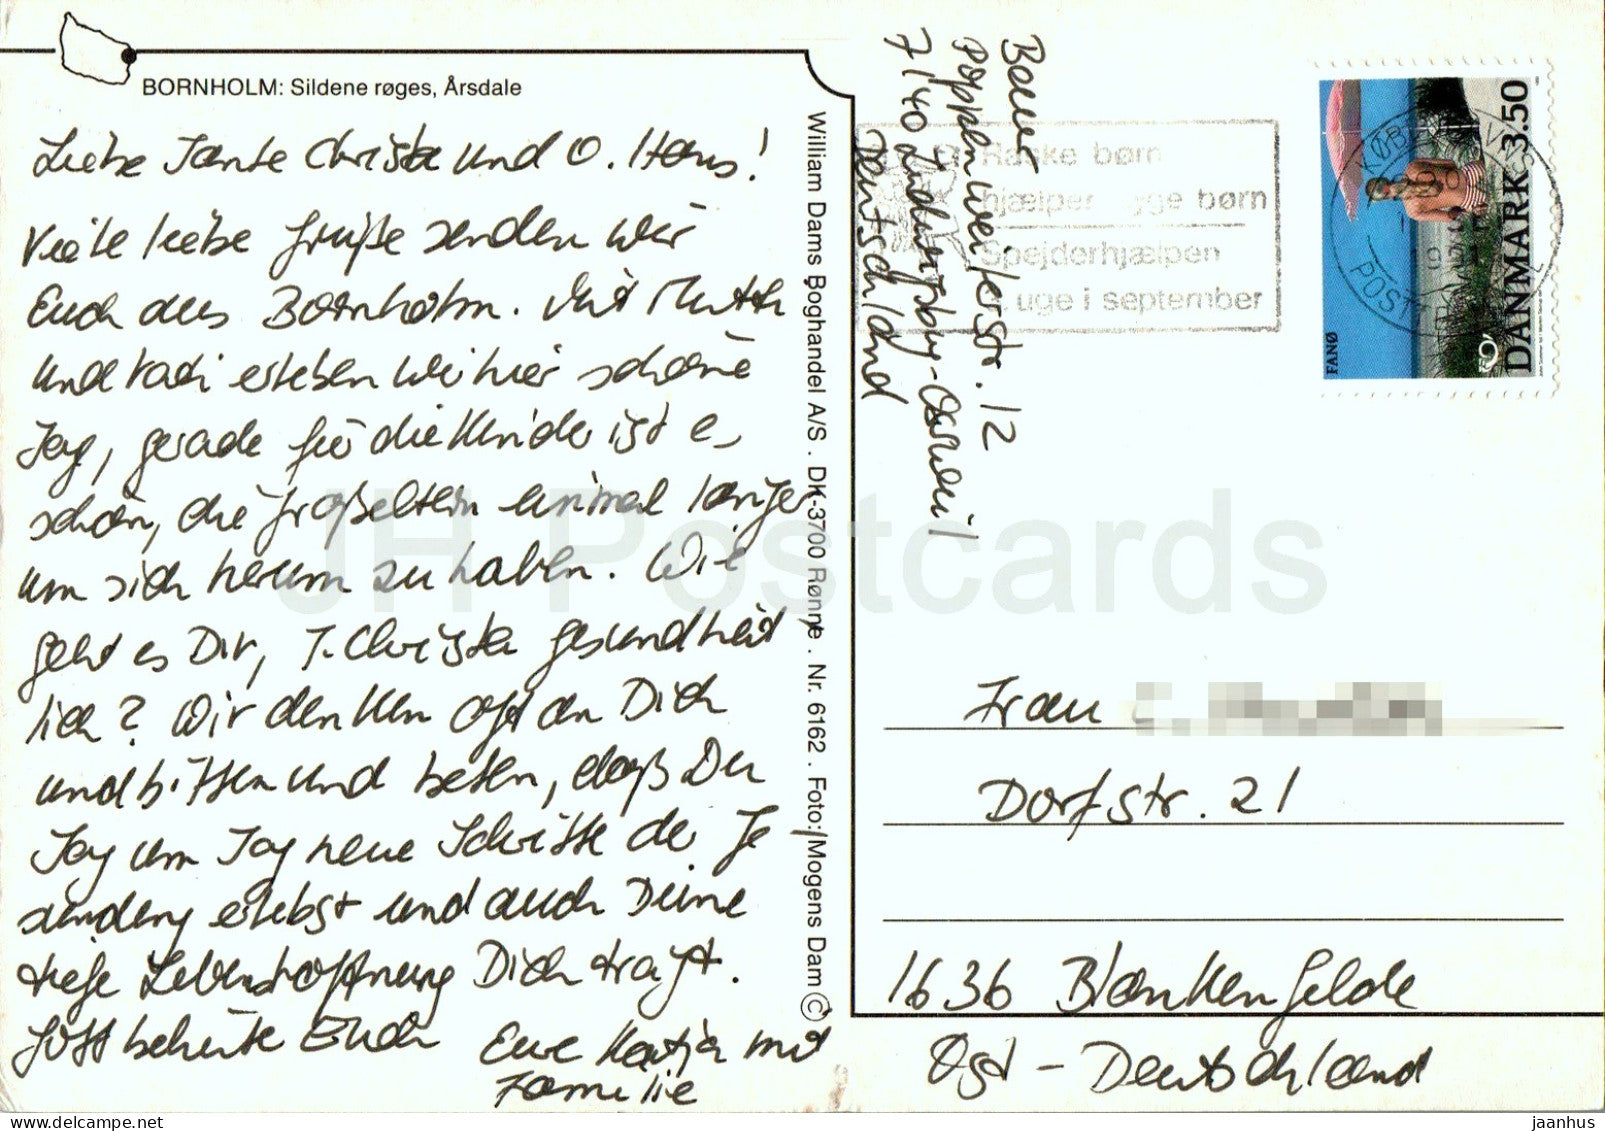 BORNHOLM: Sildene røges, Årsdale
Liebe Tante Christa und O. Hans!
Viele liebe Grüße senden wir
Euch aus Bornholm. Mit Mutti
und Vati erleben wir hier schöne
Tag, gerade für die Kinder ist es
schön, die Großeltern einmal länger
um sich herum zu haben. Wie
geht es Dir, T. Christa gesundheit
lich? Wir denken oft an Dich
und bitten und beten, daß Du
Tag um Tag neue Schritte der Ge
sundung erlebst und auch Deine
tiefe Lebenshoffnung Dich trägt.
Gott behüte Euch
Eure Katja mit
Familie
William Dams Boghandel A/S . DK-3700 Rønne . Nr. 6162 . Foto: Mogens Dam ©
Bauer
Poppenweilerstr. 12
7140 Ludwigsburg-Ossweil
Deutschland
Raske børn
hjælper syge børn
Spejderhjælpen
uge i september
POST
FANØ
DANMARK 3.50
Frau
Dorfstr. 21
1636 Blankenfelde
Ost - Deutschland
JH Postcards
jaanhus